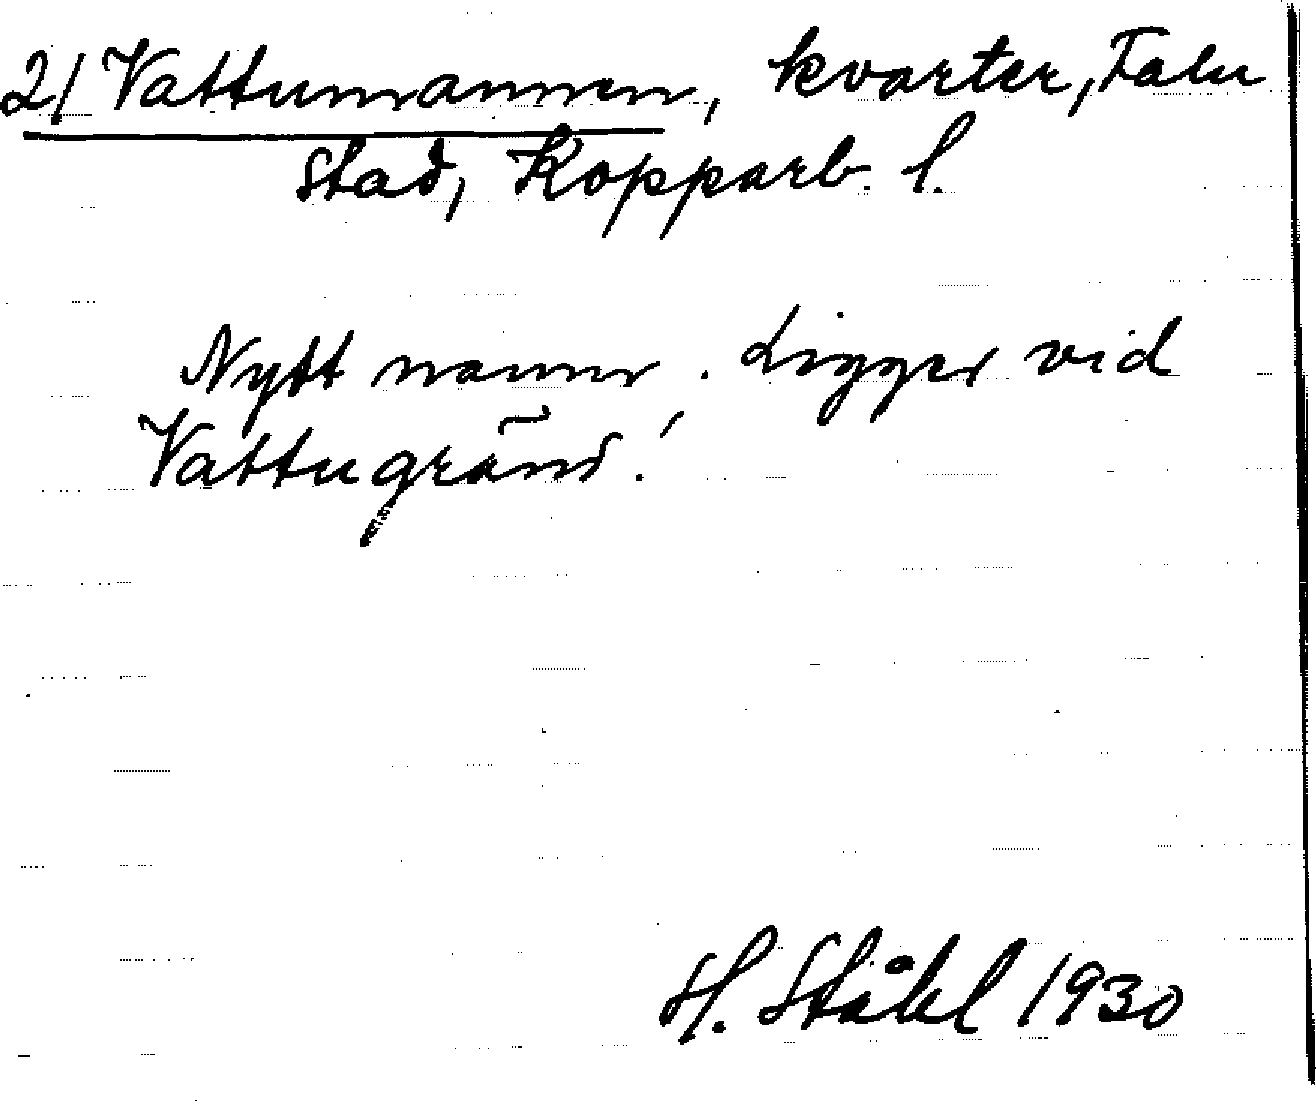 2/ Vattumannen, kvarter, Falu
stad, Kopparb. l.
Nytt namn. Ligger vid
Vattugränd.
H. Ståhl 1930